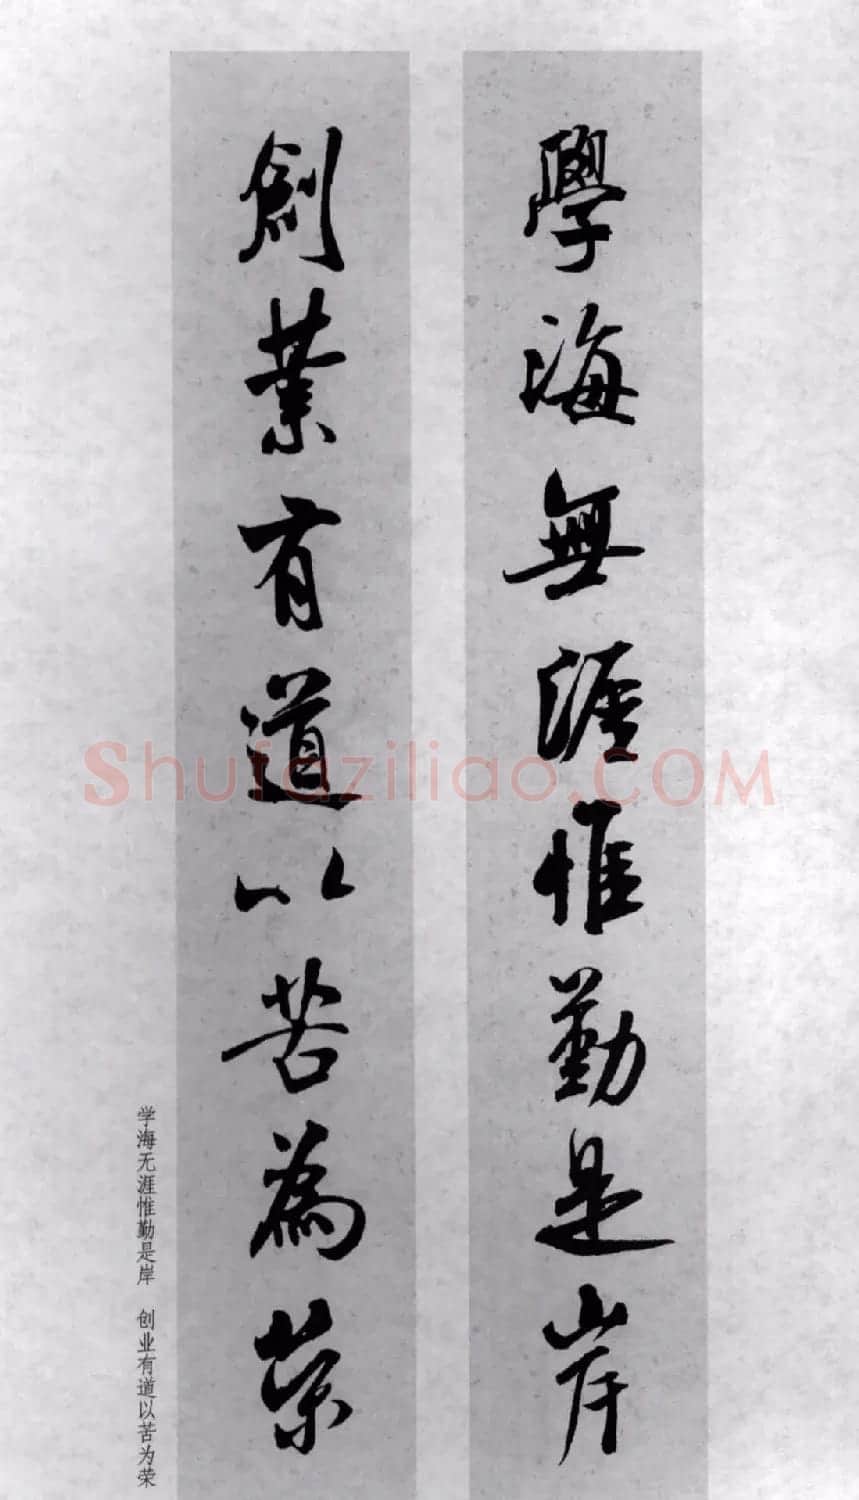 學海無涯惟勤是岸
創業有道以苦為榮
学海无涯惟勤是岸 创业有道以苦为荣
Shufaziliao.COM